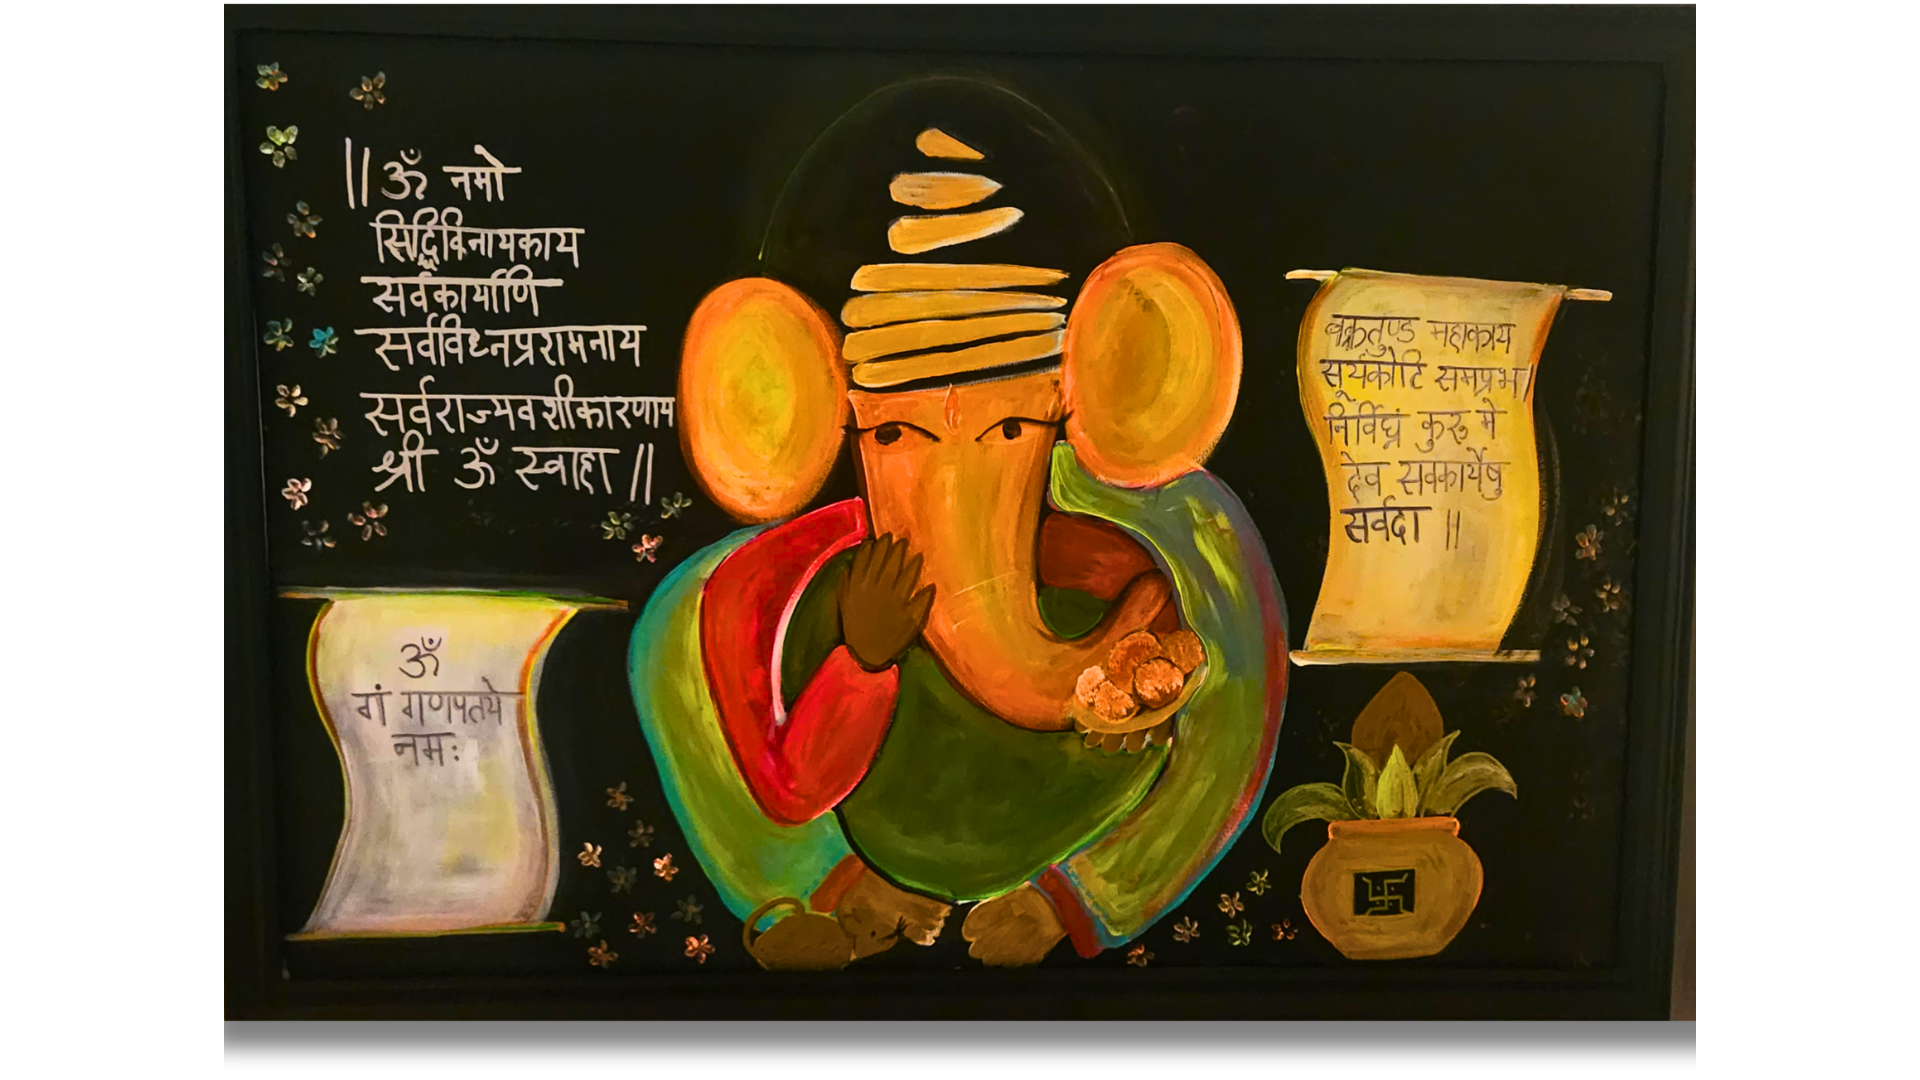 ||ॐ नमो
सिद्धिविनायकाय
सर्वकार्याणि
सर्वविध्नप्ररामनाय
सर्वराज्यवशीकारणाय
श्री ॐ स्वाहा ||
ॐ
गं गणपतये
नमः
वक्रतुण्ड महाकाय
सूर्यकोटि समप्रभ/
निर्विघ्नं कुरु मे
देव सवकार्येषु
सर्वदा ||